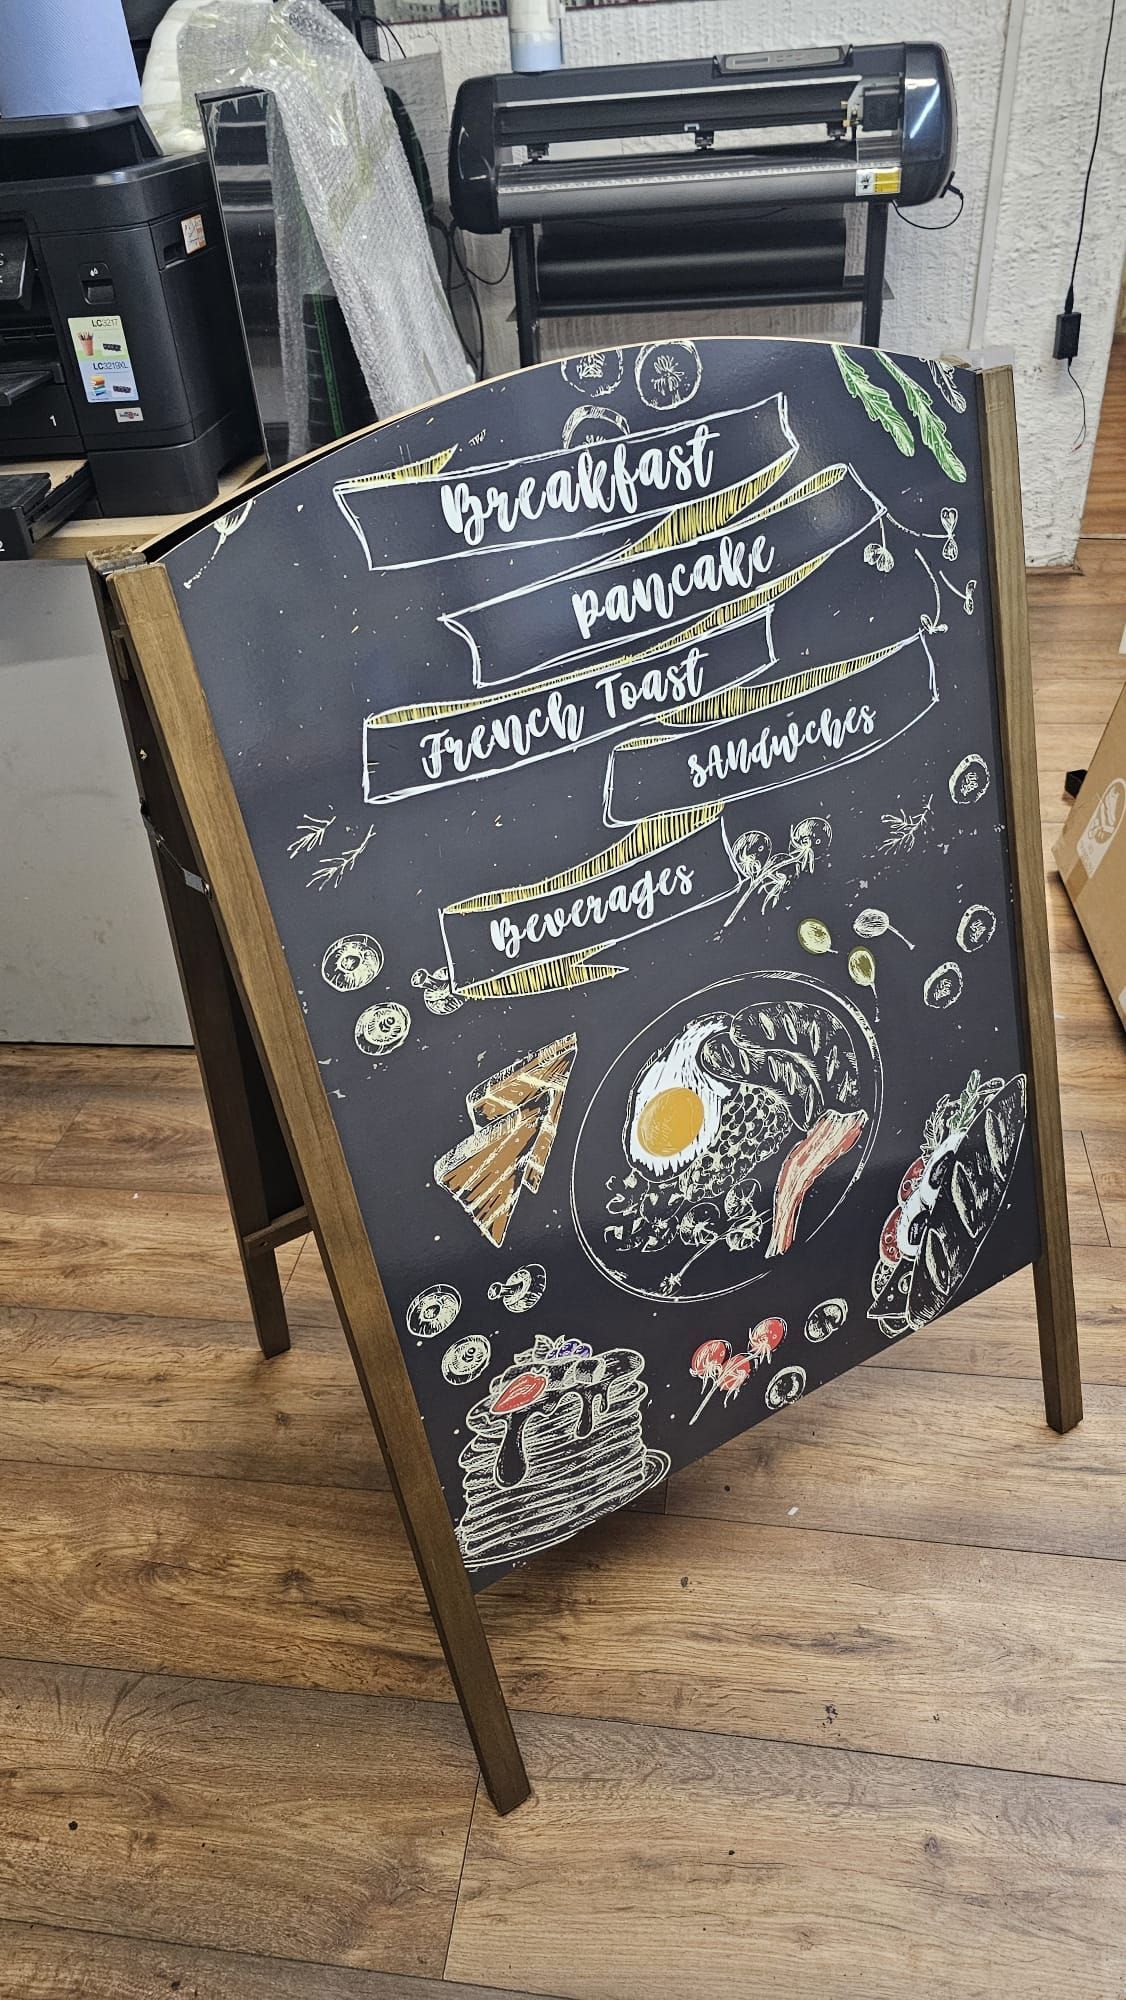 LC3217
LC3219XL
1
2
Breakfast
pancake
French Toast
sANdwches
Beverages